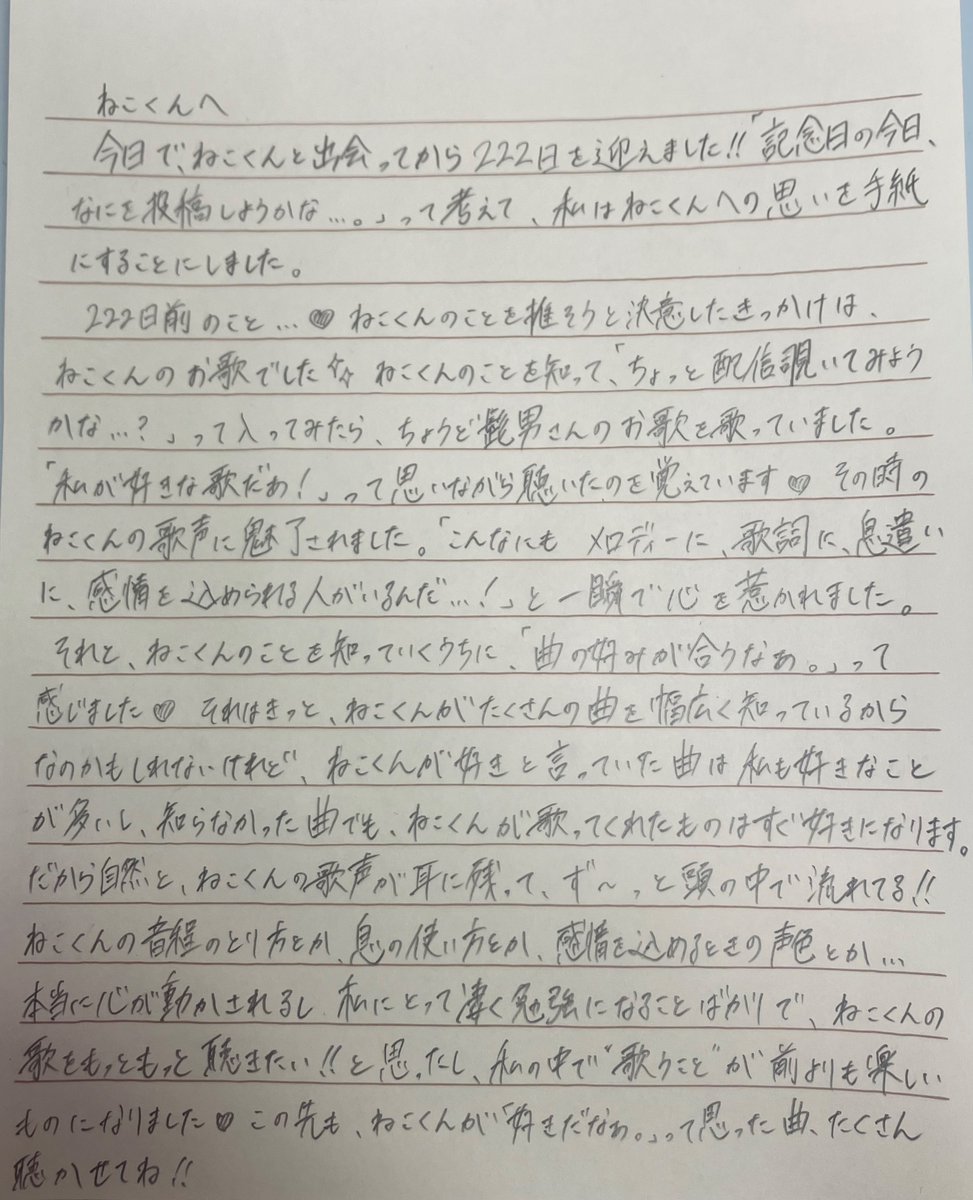 ねこくんへ
今日で、ねこくんと出会ってから222日を迎えました!!「記念日の今日、
なにを投稿しようかな…。」って考えて、私はねこくんへの思いを手紙
にすることにしました。
222日前のこと…♡ ねこくんのことを推そうと決意したきっかけは、
ねこくんのお歌でした☆☆ ねこくんのことを知って、「ちょっと配信覗いてみよう
かな…?」って入ってみたら、ちょうど髭男さんのお歌を歌っていました。
「私が好きな歌だぁ!」って思いながら聴いたのを覚えています♡ その時の
ねこくんの歌声に魅了されました。「こんなにも メロディーに、歌詞に、息遣い
に、感情を込められる人がいるんだ…!」と一瞬で心を惹かれました。
それと、ねこくんのことを知っていくうちに、「曲の好みが合うなぁ。」って
感じました♡ それはきっと、ねこくんがたくさんの曲を幅広く知っているから
なのかもしれないけれど、ねこくんが好きと言っていた曲は私も好きなこと
が多いし、知らなかった曲でも、ねこくんが歌ってくれたものはすぐ好きになります。
だから自然と、ねこくんの歌声が耳に残って、ず〜っと頭の中で流れてる!!
ねこくんの音程のとり方とか、息の使い方とか、感情を込めるときの声色とか…
本当に心が動かされるし、私にとって凄く勉強になることばかりで、ねこくんの
歌をもっともっと聴きたい!!と思ったし、私の中で"歌うこと"が前よりも楽しい
ものになりました♡ この先も、ねこくんが「好きだなぁ。」って思った曲、たくさん
聴かせてね!!